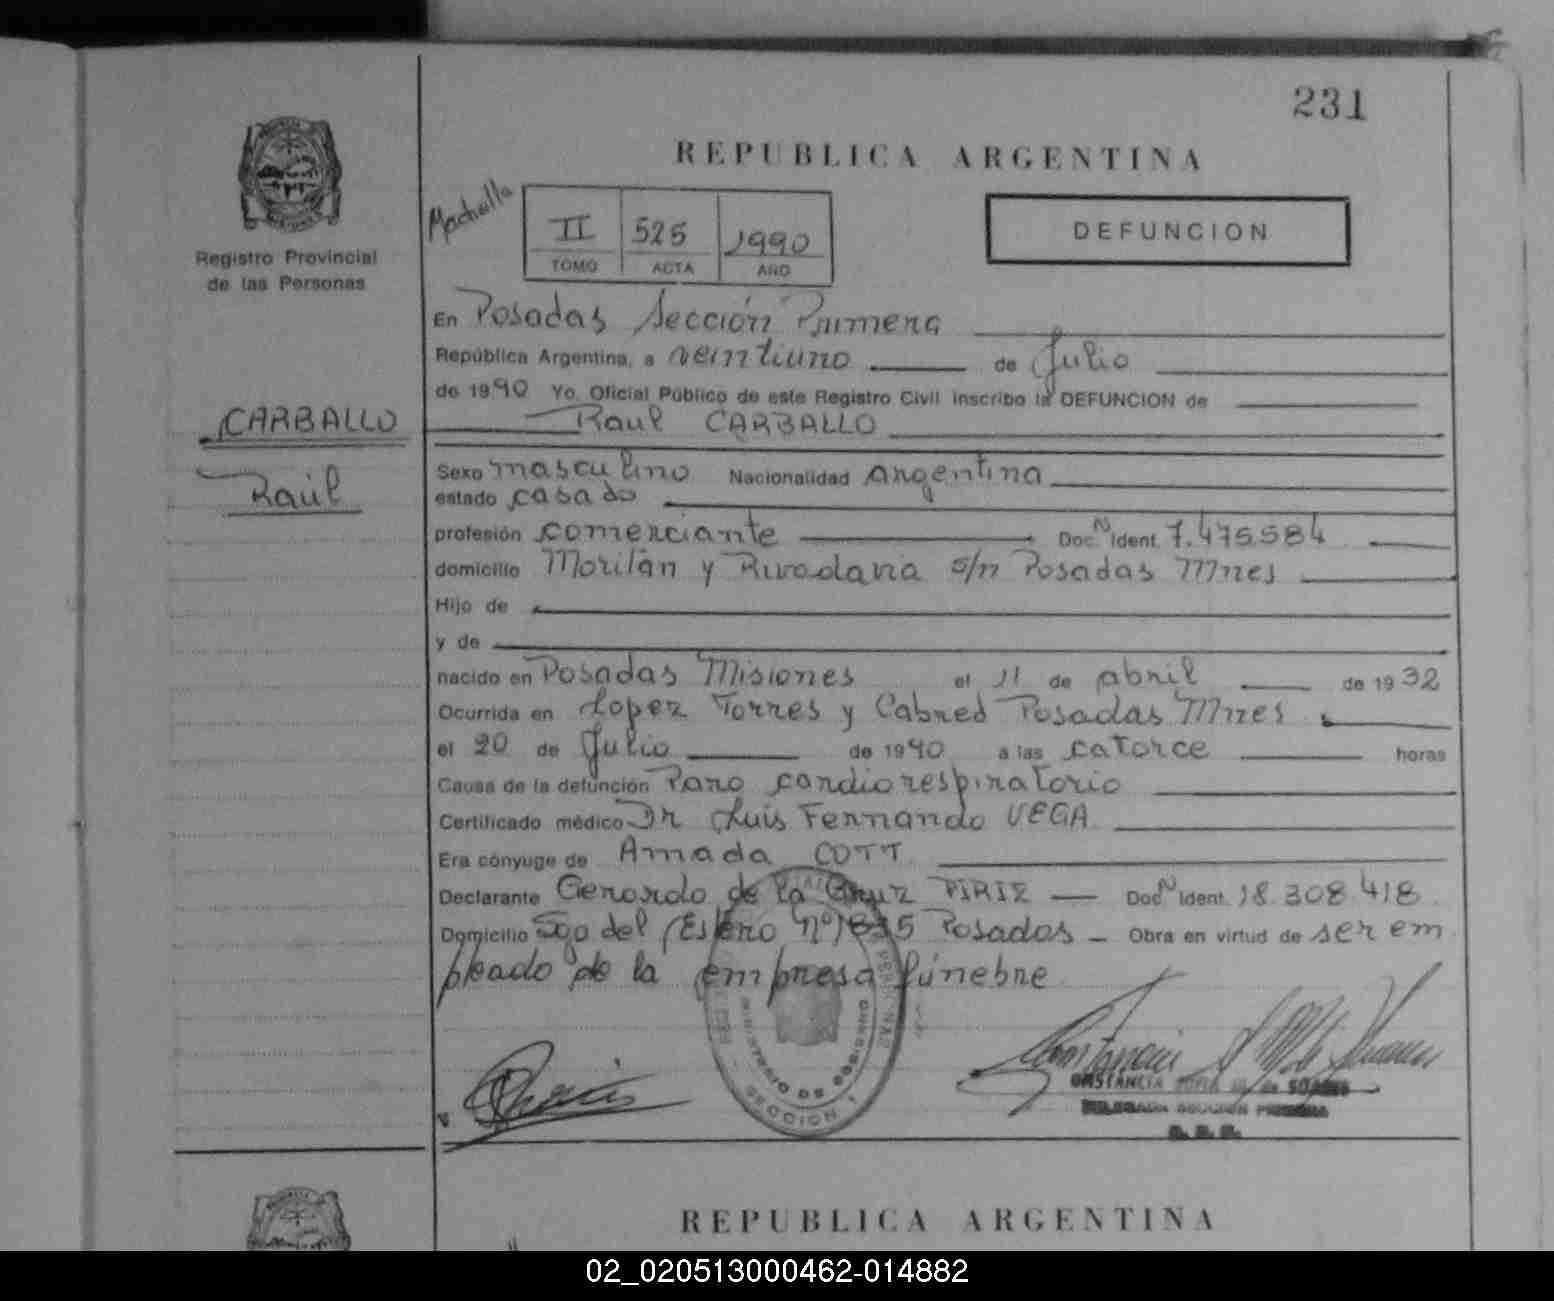 231
REPUBLICA ARGENTINA
Registro Provincial
de las Personas
II 525 1990
TOMO ACTA AÑO
DEFUNCION
En Posadas Sección Primera
República Argentina, a veintiuno de Julio
de 1990 Yo, Oficial Público de este Registro Civil inscribo la DEFUNCION de
Raul CARBALLO
CARBALLO
Raúl
Sexo masculino Nacionalidad Argentina
estado casado
profesión comerciante Doc. Nº Ident. 7.475.584
domicilio y Rivadavia s/n Posadas Mnes
Hijo de
y de
nacido en Posadas Misiones el 11 de abril de 1932
Ocurrida en Lopez Torres y Cabred Posadas Mnes
el 20 de Julio de 1990 a las catorce horas
Causa de la defunción Paro cardiorespiratorio
Certificado médico Dr Luis Fernando VEGA
Era cónyuge de Amada COTT
Declarante Gerardo de la Cruz PIRIZ Doc Nº Ident. 18.308.418
Domicilio Sgo del Estero Nº 1835 Posadas Obra en virtud de ser em
pleado de la empresa fúnebre
MINISTERIO DE GOBIERNO
SECCION 1
DELEGADA SECCION PRIMERA
REPUBLICA ARGENTINA
02_020513000462-014882